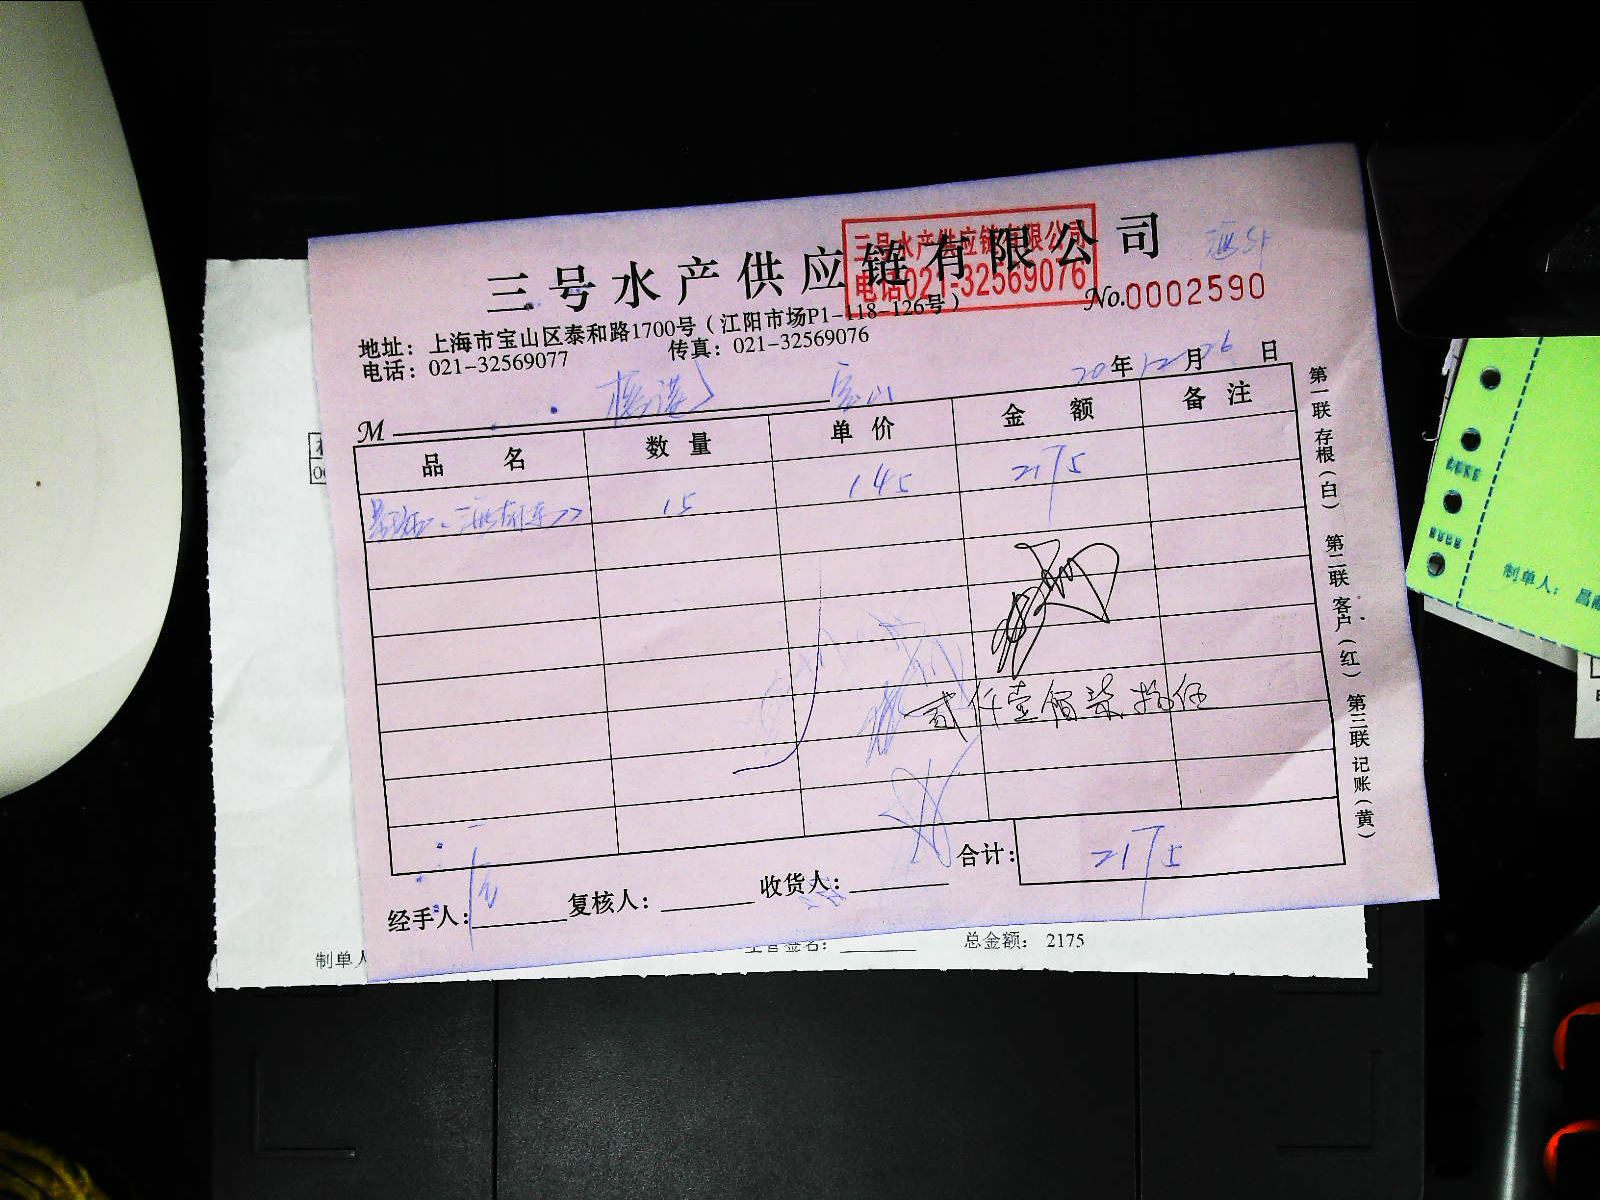 三号水产供应链有限公司
三号水产供应链有限公司
电话021-32569076
No.0002590
地址：上海市宝山区泰和路1700号（江阳市场P1-118-126号）
电话：021-32569077 传真：021-32569076
20年12月26日
M
品名 数量 单价 金额 备注
15 145 2175
贰仟壹佰柒拾伍
合计：2175
经手人： 复核人： 收货人：
第一联 存根（白） 第二联 客户（红） 第三联 记账（黄）
制单人 主管签名： 总金额： 2175
制单人：